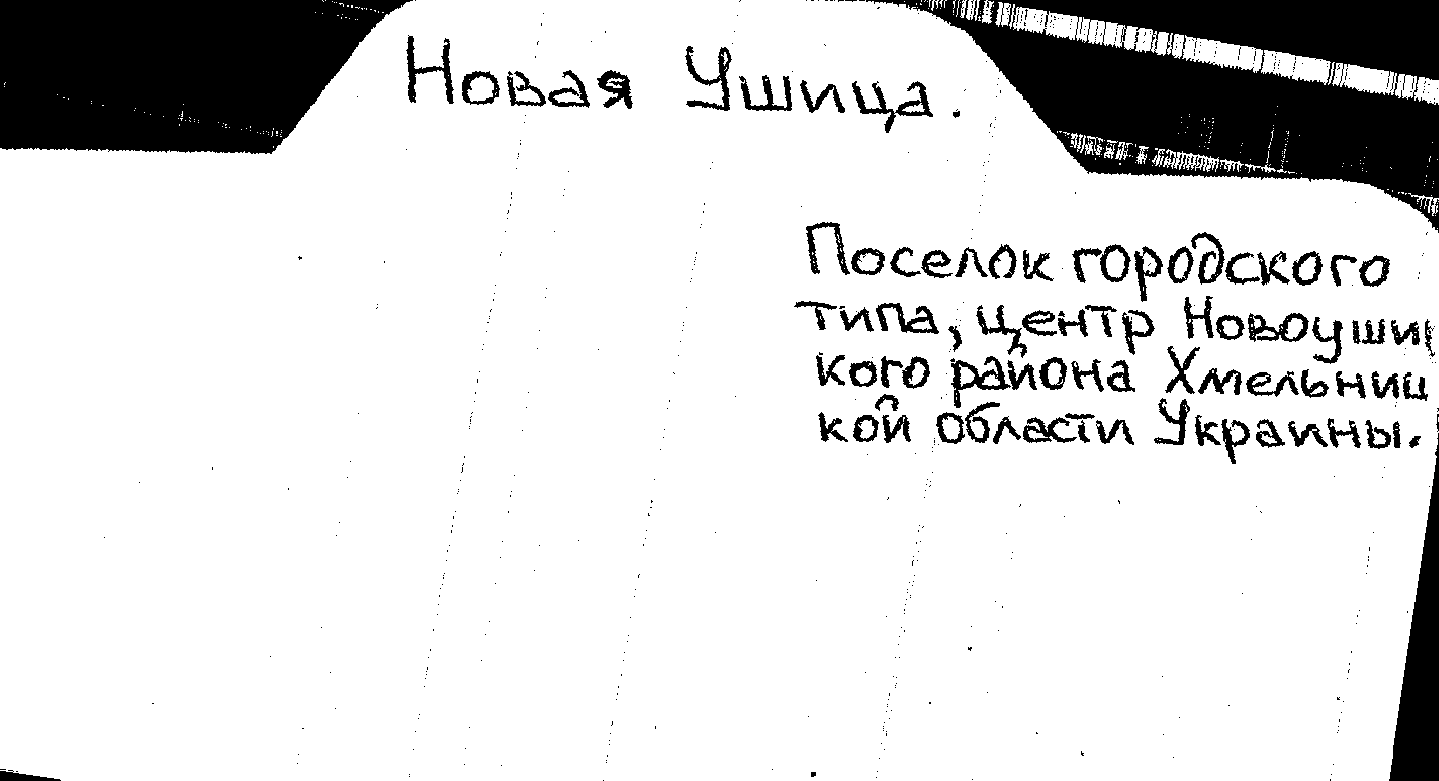 Новая Ушица.
Поселок городского
типа, центр Новоушиц
кого района Хмельниц
кой области Украины.